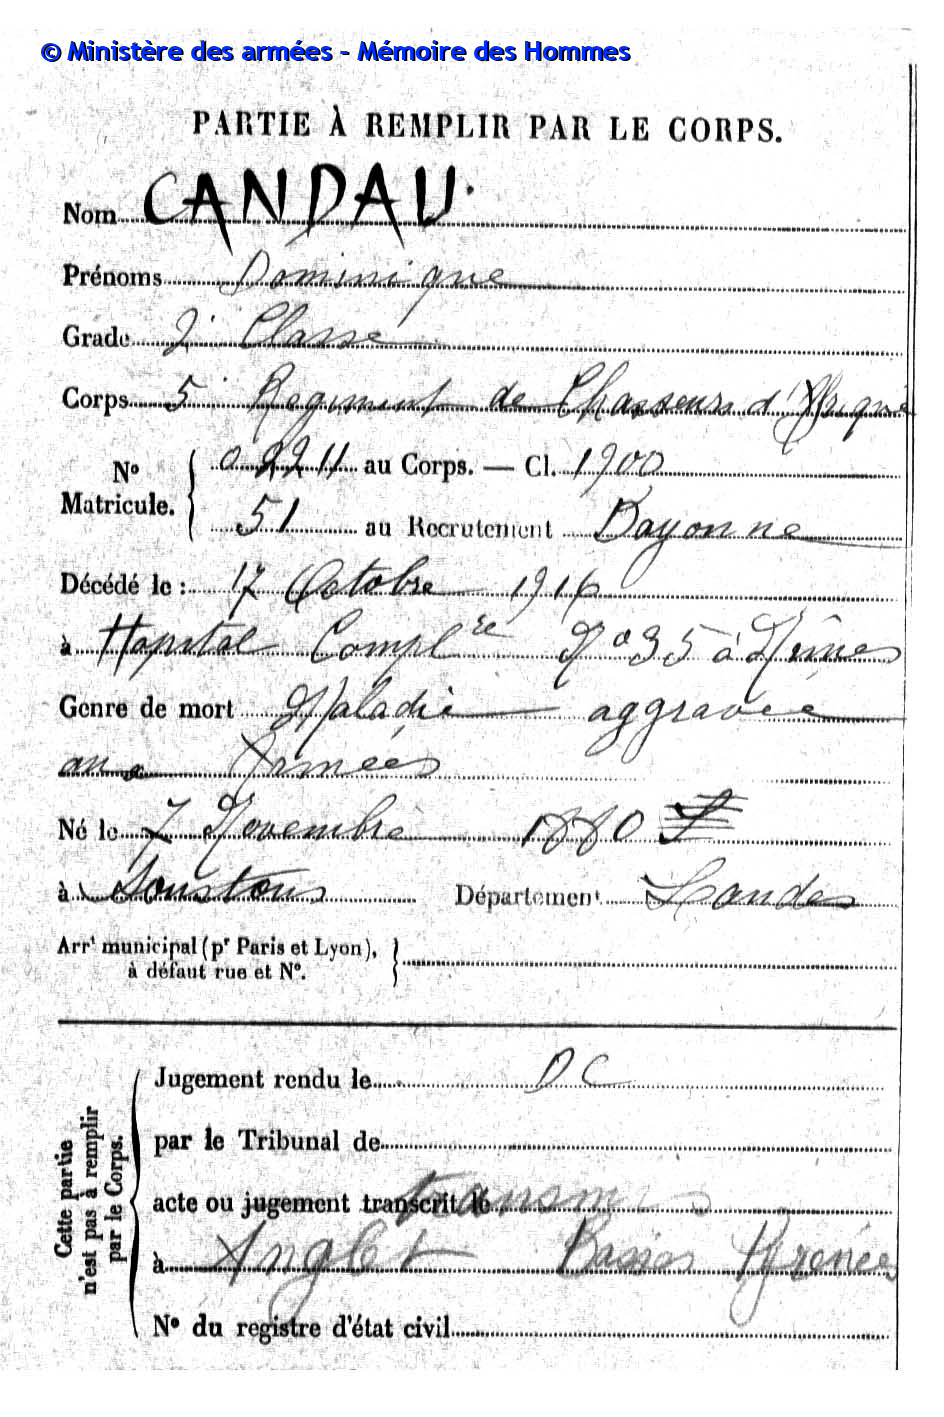 © Ministère des armées - Mémoire des Hommes
PARTIE À REMPLIR PAR LE CORPS.
Nom CANDAU
Prénoms Dominique
Grade 2e Classe
Corps 5e Régiment de Chasseurs d'Afrique
No Matricule. { 02211 au Corps. — Cl. 1900
51 au Recrutement Bayonne
Décédé le : 17 Octobre 1916
à Hopital Complre No 35 à Nîmes
Genre de mort Maladie aggravée
aux Armées
Né le 7 Novembre 1880
à Soustons Département Landes
Arrt municipal (pr Paris et Lyon),
à défaut rue et No.
Cette partie n'est pas à remplir par le Corps.
Jugement rendu le DC
par le Tribunal de
acte ou jugement transcrit le transmis
à Anglet Basses Pyrénées
No du registre d'état civil